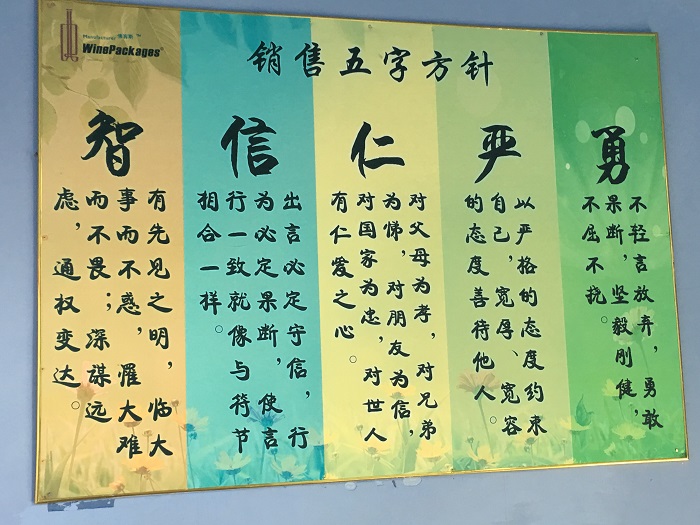 Manufacturer
WinePackages®
销售五字方针
智
有先见之明，临大
事而不惑，罹大难
而不畏；深谋远
虑，通权变达。
信
出言必定守信，行
为必定果断，使言
行一致就像与符节
相合一样。
仁
对父母为孝，对兄弟
为悌，对朋友为信，
对国家为忠，对世人
有仁爱之心。
严
以严格的态度约束
自己，宽厚、宽容
的态度善待他人。
勇
不轻言放弃，勇敢
果断，坚毅刚健，
不屈不挠。